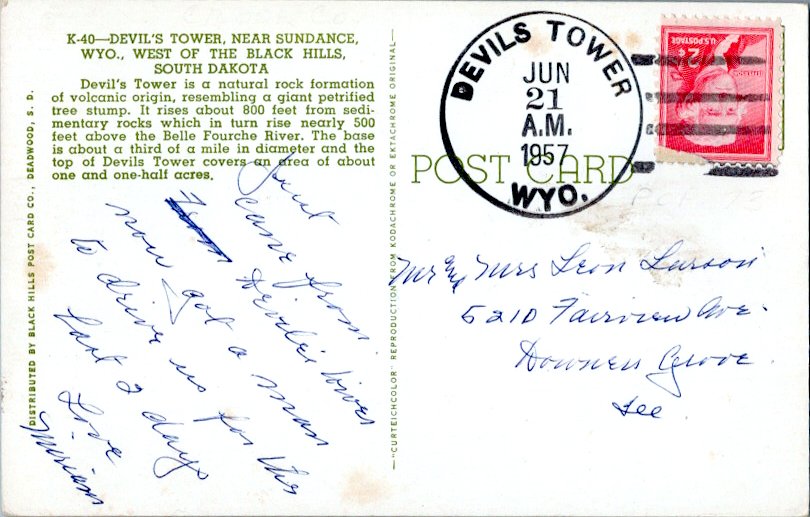 K-40—DEVIL'S TOWER, NEAR SUNDANCE,
WYO., WEST OF THE BLACK HILLS,
SOUTH DAKOTA
Devil's Tower is a natural rock formation
of volcanic origin, resembling a giant petrified
tree stump. It rises about 800 feet from sedi-
mentary rocks which in turn rise nearly 500
feet above the Belle Fourche River. The base
is about a third of a mile in diameter and the
top of Devils Tower covers an area of about
one and one-half acres.
DISTRIBUTED BY BLACK HILLS POST CARD CO., DEADWOOD, S. D.
Just
came from
Devil's Tower
now got a man
to drive us for the
last 2 days
Love
Miriam
"CURTEICHCOLOR" REPRODUCTION FROM KODACHROME OR EKTACHROME ORIGINAL
POST CARD
DEVILS TOWER
JUN
21
A.M.
1957
WYO.
U.S. POSTAGE
2¢
Mr & Mrs Leon Larson
5210 Fairview Ave.
Downers Grove.
Ill